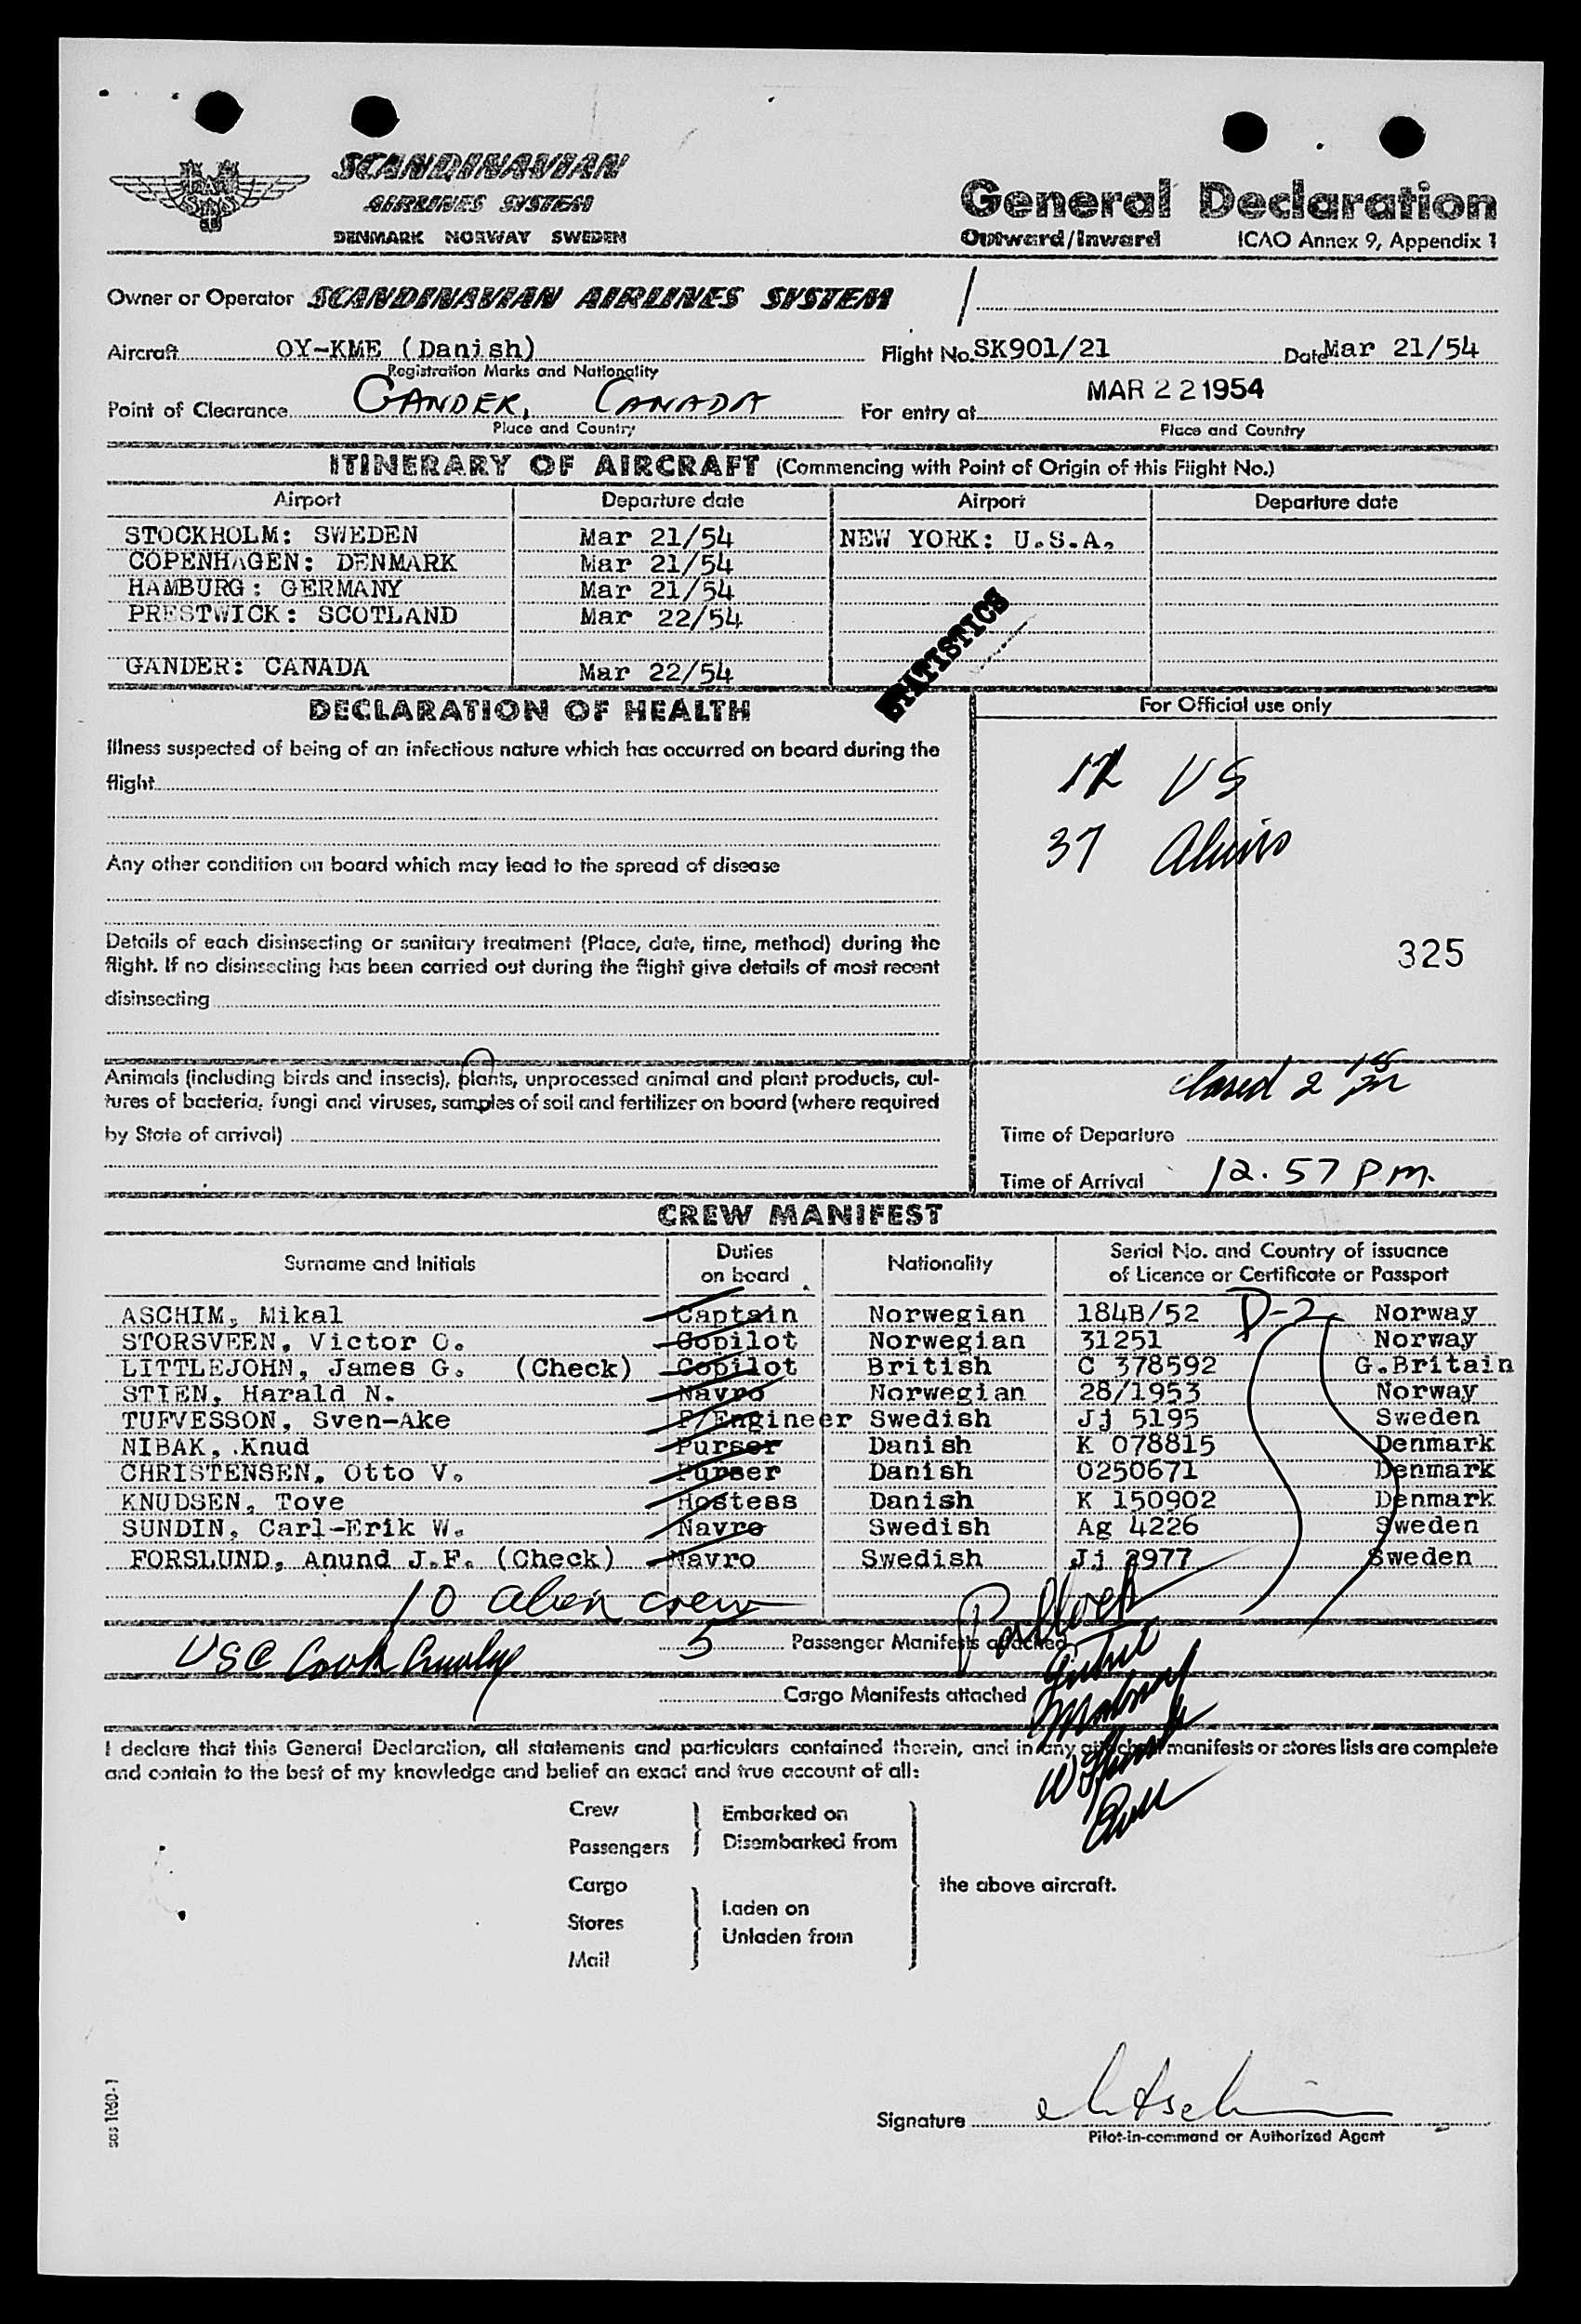 SCANDINAVIAN
AIRLINES SYSTEM
DENMARK NORWAY SWEDEN
General Declaration
Outward/Inward ICAO Annex 9, Appendix 1
Owner or Operator SCANDINAVIAN AIRLINES SYSTEM /
Aircraft OY-KME (Danish) Flight No. SK901/21 Date Mar 21/54
Registration Marks and Nationality
MAR 22 1954
Point of Clearance GANDER, CANADA For entry at
Place and Country Place and Country
ITINERARY OF AIRCRAFT (Commencing with Point of Origin of this Flight No.)
Airport Departure date Airport Departure date
STOCKHOLM: SWEDEN Mar 21/54 NEW YORK: U.S.A.
COPENHAGEN: DENMARK Mar 21/54
HAMBURG: GERMANY Mar 21/54
PRESTWICK: SCOTLAND Mar 22/54
GANDER: CANADA Mar 22/54
STATISTICS
DECLARATION OF HEALTH
For Official use only
Illness suspected of being of an infectious nature which has occurred on board during the
flight
12 US
37 Aliens
Any other condition on board which may lead to the spread of disease
Details of each disinsecting or sanitary treatment (Place, date, time, method) during the
flight. If no disinsecting has been carried out during the flight give details of most recent
disinsecting
325
Animals (including birds and insects), plants, unprocessed animal and plant products, cul-
tures of bacteria, fungi and viruses, samples of soil and fertilizer on board (where required
by State of arrival)
closed 2 15 pm
Time of Departure
Time of Arrival 12.57 PM.
CREW MANIFEST
Surname and Initials Duties on board Nationality Serial No. and Country of issuance of Licence or Certificate or Passport
ASCHIM, Mikal Captain Norwegian 184B/52 D-2 Norway
STORSVEEN, Victor O. Copilot Norwegian 31251 Norway
LITTLEJOHN, James G. (Check) Copilot British C 378592 G.Britain
STIEN, Harald N. Navro Norwegian 28/1953 Norway
TUFVESSON, Sven-Ake F/Engineer Swedish Jj 5195 Sweden
NIBAK, Knud Purser Danish K 078815 Denmark
CHRISTENSEN, Otto V. Purser Danish 0250671 Denmark
KNUDSEN, Tove Hostess Danish K 150902 Denmark
SUNDIN, Carl-Erik W. Navro Swedish Ag 4226 Sweden
FORSLUND, Anund J.F. (Check) Navro Swedish Jj 2977 Sweden
10 alien crew
USC
5 Passenger Manifests attached
Cargo Manifests attached
I declare that this General Declaration, all statements and particulars contained therein, and in any attached manifests or stores lists are complete
and contain to the best of my knowledge and belief an exact and true account of all:
Crew
Passengers
Embarked on
Disembarked from
Cargo
Stores
Mail
Laden on
Unladen from
the above aircraft.
Signature
Pilot-in-command or Authorized Agent
sas 1060-1